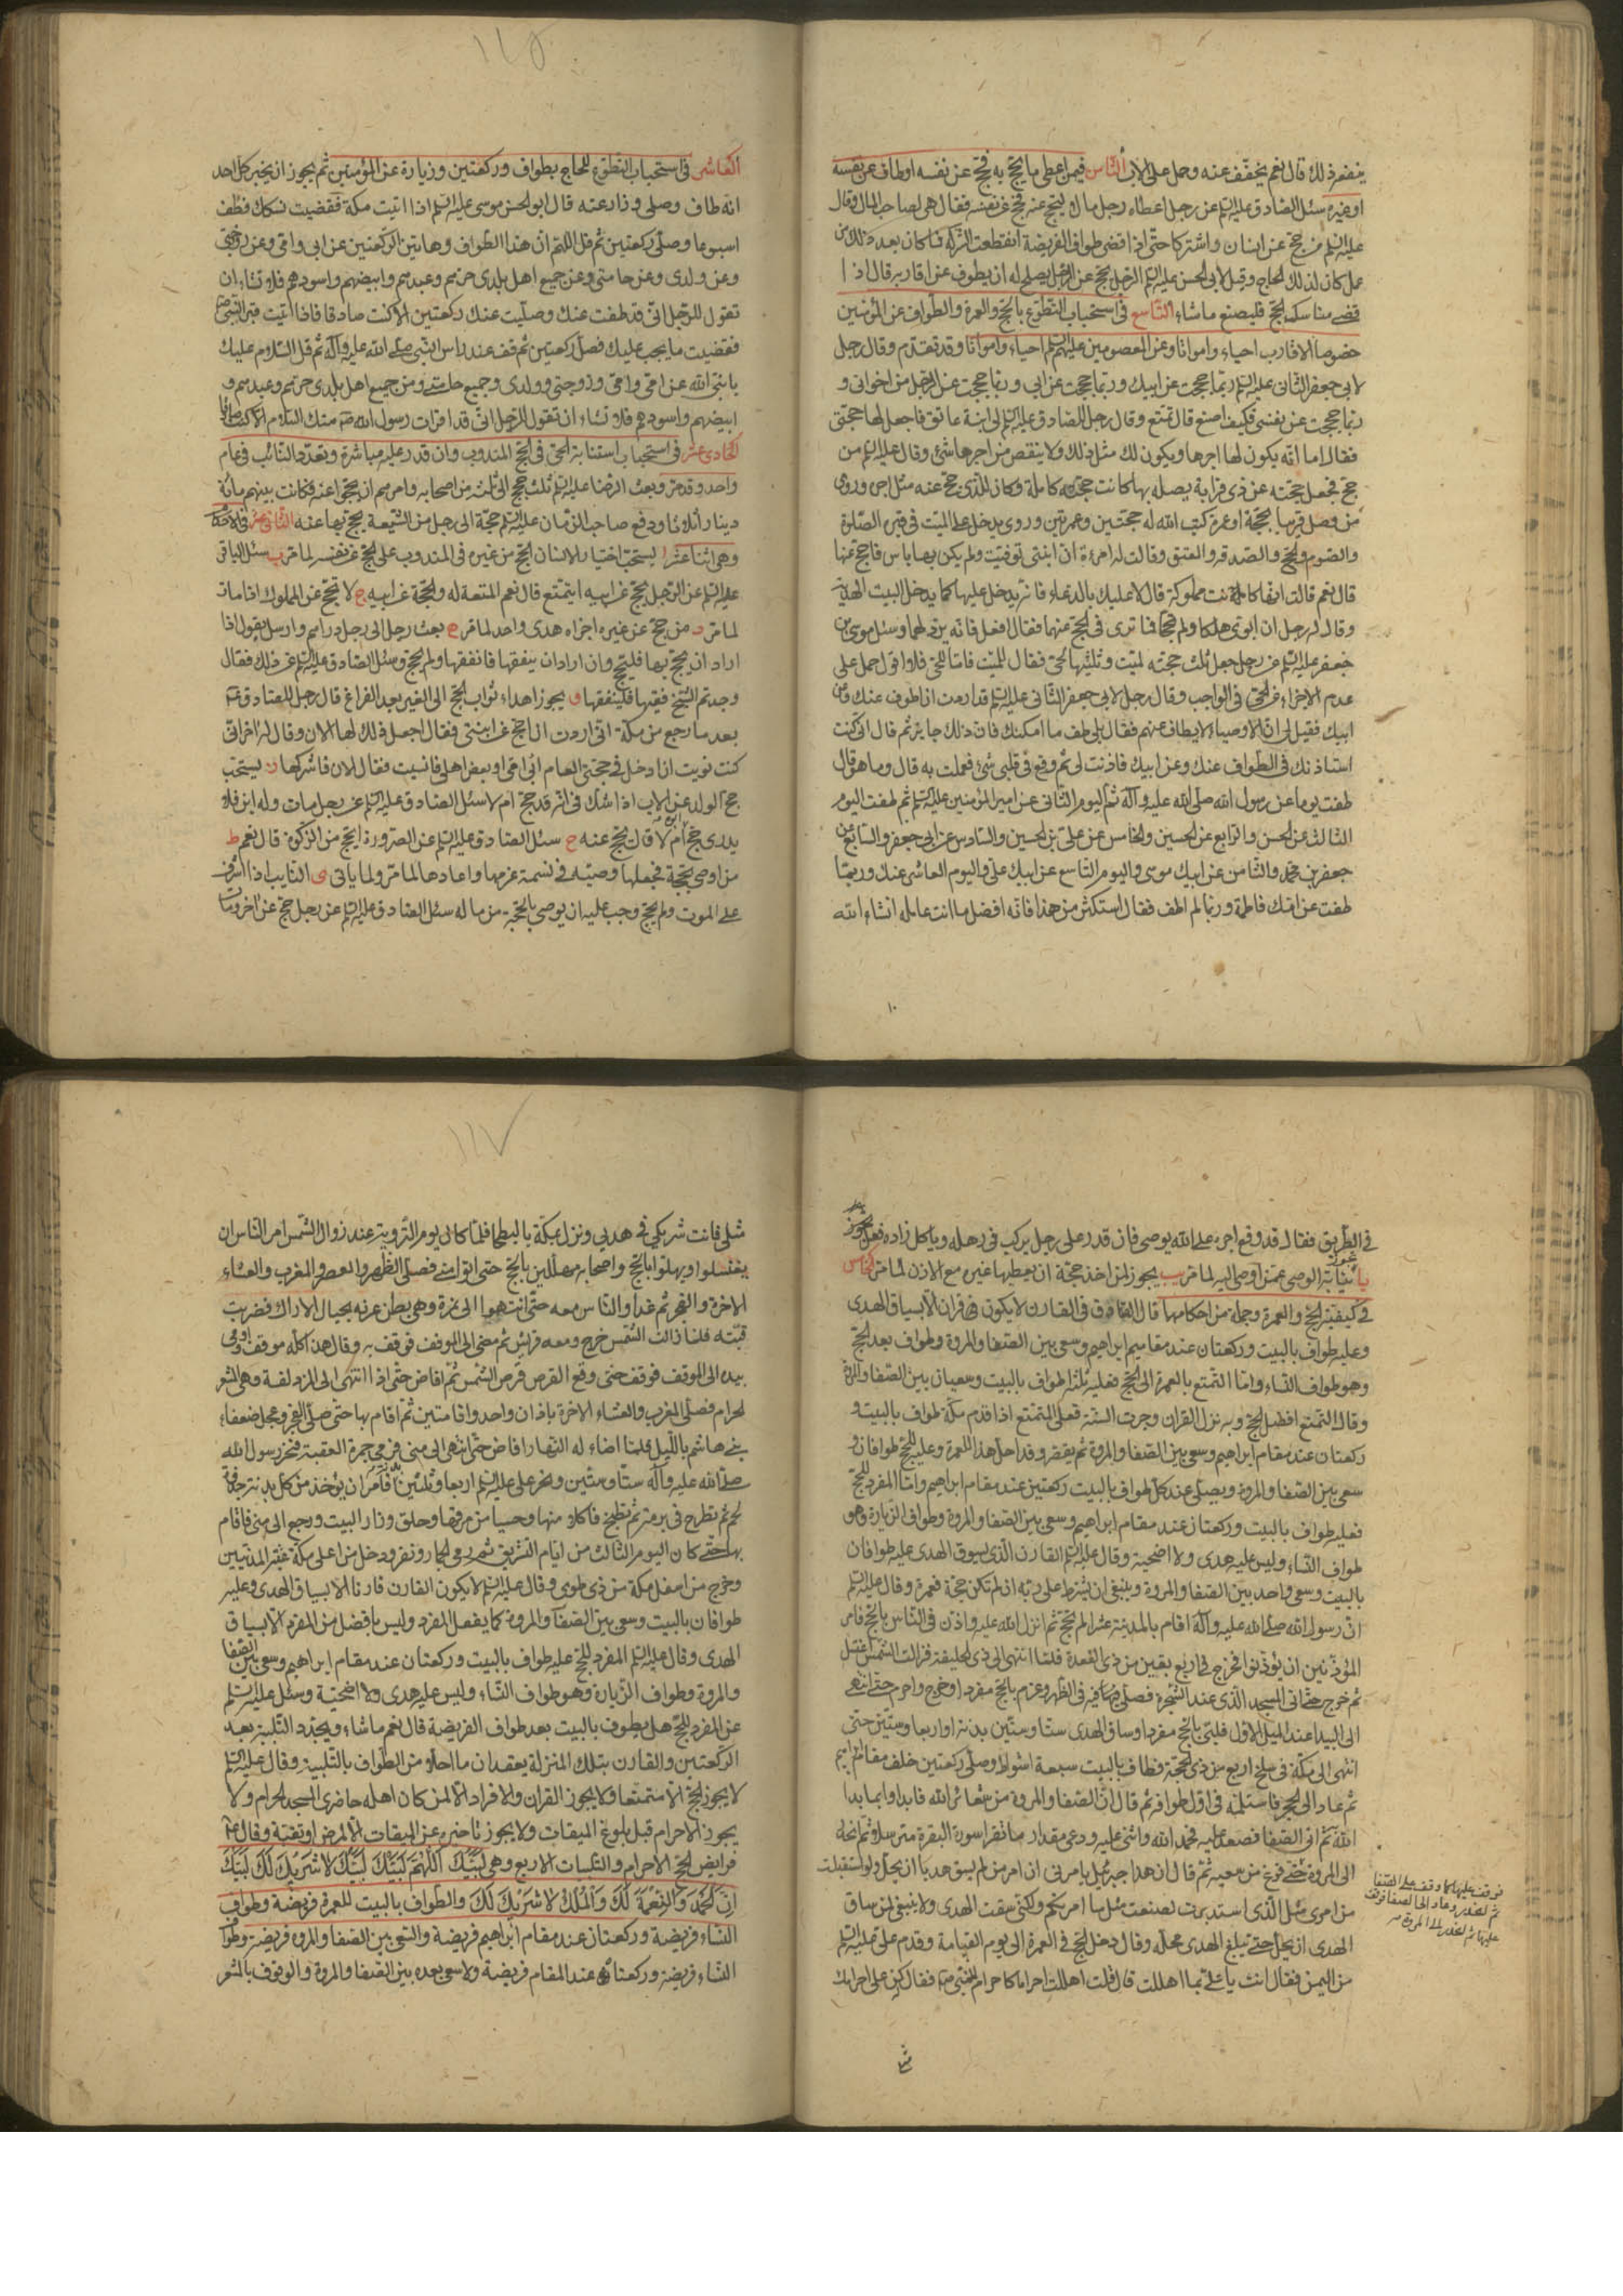 ينفعه ذلك قال نعم يخفف عنه وحمل على الاب الثامن فيمن اعطى ما يحج به فحج عن نفسه او طاف عن نفسه
او غيره سئل الصادق عليه السلم عن رجل اعطاه رجل مالا ليحج عنه فحج عن نفسه فقال هي لصاحب المال وقال
عليه السلم من حج عن انسان واشتركا حتى اذا قضى طواف الفريضة انقطعت الشركة فما كان بعد ذلك من
عمل كان لذلك الحاج وقيل لابي الحسن عليه السلم الرجل يحج عن الرجل يصلح له ان يطوف عن اقاربه قال اذا
قضى مناسك الحج فليصنع ما شاء التاسع في استحباب التطوع بالحج والعمرة والطواف عن المؤمنين
خصوصا الاقارب احياء وامواتا وعن المعصومين عليهم السلم احياء وامواتا وقد تقدم وقال رجل
لابي جعفر الثاني عليه السلم ربما حججت عن ابيك وربما حججت عن ابي وربما حججت عن الرجل من اخواني و
ربما حججت عن نفسي فكيف اصنع قال تمتع وقال رجل للصادق عليه السلم لي ابنة عاتق فاجعل لها حجتي
فقال اما انه يكون لها اجرها ويكون لك مثل ذلك ولا ينقص من اجرها شئ وقال عليه السلم من
حج فجعل حجته عن ذي قرابة يصله بها كانت حجته كاملة وكان للذي حج عنه مثل اجره وروى
من وصل قريبا بحجة او عمرة كتب الله له حجتين وعمرتين وروى يدخل على الميت في قبره الصلوة
والصوم والحج والصدقة والعتق وقالت له امرءة ان ابنتي توفيت ولم يكن بها باس فاحج عنها
قال نعم قالت انها كانت مملوكة قال لا عليك بالدعاء فانه يدخل عليها كما يدخل البيت الهدية
وقال له رجل ان ابوى هلكا ولم يحجا فما ترى في الحج عنهما فقال افعل فانه برد لهما وسئل موسى بن
جعفر عليه السلم عن رجل جعل ثلث حجته لميت وثلثيها لحي فقال للميت فاما للحي فلا اقول حمل على
عدم الاجزاء عن الحي في الواجب وقال رجل لابي جعفر الثاني عليه السلم قد اردت ان اطوف عنك وعن
ابيك فقيل لي ان الاوصياء لا يطاف عنهم فقال بلى طف ما امكنك فان ذلك جايز ثم قال اني كنت
استاذنك في الطواف عنك وعن ابيك فاذنت لي ثم وقع في قلبي شئ فعملت به قال وما هو قال
طفت يوما عن رسول الله صلى الله عليه وآله ثم اليوم الثاني عن امير المؤمنين عليه السلم ثم طفت اليوم
الثالث عن الحسن والرابع عن الحسين والخامس عن علي بن الحسين والسادس عن ابي جعفر والسابع عن
جعفر بن محمد والثامن عن ابيك موسى واليوم التاسع عن ابيك علي واليوم العاشر عنك وربما
طفت عن امك فاطمة وربما لم اطف فقال استكثر من هذا فانه افضل ما انت عامله انشاء الله
١١٥
العاشر في استحباب التطوع للحاج بطواف وركعتين وزيارة عن المؤمنين ثم يجوز ان يخبر كل احد
انه طاف وصلى وزار عنه قال ابو الحسن موسى عليه السلم اذا اتيت مكة فقضيت نسكك فطف
اسبوعا وصل ركعتين ثم قل اللهم ان هذا الطواف وهاتين الركعتين عن ابي وامي وعن زوجتي
وعن ولدي وعن حامتي وعن جميع اهل بلدي حرهم وعبدهم وابيضهم واسودهم فلا تشاء ان
تقول للرجل اني قد طفت عنك وصليت عنك ركعتين الا كنت صادقا فاذا اتيت قبر النبي
فقضيت ما يجب عليك فصل ركعتين ثم قف عند راس النبي صلى الله عليه وآله ثم قل السلام عليك
يا نبي الله عن ابي وامي وزوجتي وولدي وجميع حامتي ومن جميع اهل بلدي حرهم وعبدهم و
ابيضهم واسودهم فلا تشاء ان تقول للرجل اني قد اقرات رسول الله منك السلام الا كنت صادقا
الحادي عشر في استحباب استنابة الحي في الحج المندوب وان قدر عليه مباشرة وتعدد النائب في عام
واحد وقد مر وبعث الرضا عليه السلم ثلث حجج الى ثلثة من اصحابه وامرهم ان يحجوا عنه فكانت بينهم مائة
دينار اثلاثا ودفع صاحب الزمان عليه السلم حجة الى رجل من الشيعة ليحج بها عنه الثاني عشر في الاحكام
وهي اثنا عشر ا يستحب اختيار الانسان الحج من غيره في المندوب على الحج عن نفسه لما مر ب سئل الباقر
عليه السلم عن الرجل يحج عن ابيه ايتمتع قال نعم المتعة له والحجة عن ابيه ج لا يحج عن المملوك اذا مات
لما مر د من حج عن غيره اجزاه هدى واحد لما مر ه بعث رجل الى رجل دراهم وارسل يقول اذا
اراد ان يحج بها فليحج وان اراد ان ينفقها فانفقها ولم يحج وسئل الصادق عليه السلم عن ذلك فقال
وجدتم الشيخ فقيها فلينفقها و يجوز اهداء ثواب الحج الى الغير بعد الفراغ قال رجل للصادق
بعد ما رجع من مكة اني اردت ان احج عن ابنتي فقال اجعل ذلك لها الان وقال له اخر اني
كنت نويت ان ادخل في حجتي العام ابي امي او بعض اهلي فانسيت فقال الان فاشركها ز يستحب
حج الولد عن الاب اذا شك في انه قد حج ام لا سئل الصادق عليه السلم عن رجل مات وله ابن فلا
يدري حج ابوه ام لا قال يحج عنه ح سئل الصادق عليه السلم عن الصرورة ايحج من الزكوة قال نعم ط
من اوصى بحجة فجعلها وصيه في نسمة غرمها واعادها لما مر ولما ياتي ي النايب اذا اشرف
على الموت ولم يحج وجب عليه ان يوصي بالحجة من ماله سئل الصادق عليه السلم عن رجل حج عن اخر ومات
في الطريق فقال قد وقع اجره على الله يوصي فان قدر على رجل يركب في رحله وياكل زاده فعل
يا يجوز نيابة الوصي عمن اوصى اليه لما مر يب يجوز لمن اخذ حجة ان يعطيها غيره مع الاذن لما مر الخامس
في كيفية الحج والعمرة وجملة من احكامها قال الصادق في القارن لا يكون قران الا بسياق الهدى
وعليه طواف بالبيت وركعتان عند مقام ابراهيم وسعى بين الصفا والمروة وطواف بعد الحج
وهو طواف النساء واما التمتع بالعمرة الى الحج فعليه ثلثة اطواف بالبيت وسعيان بين الصفا والمروة
وقال التمتع افضل الحج وبه نزل القران وجرت السنة فعلى المتمتع اذا قدم مكة طواف بالبيت و
ركعتان عند مقام ابراهيم وسعى بين الصفا والمروة ثم يقصر وقد احل هذا للعمرة وعليه للحج طوافان و
سعى بين الصفا والمروة ويصلى عند كل طواف بالبيت ركعتين عند مقام ابراهيم واما المفرد للحج
فعليه طواف بالبيت وركعتان عند مقام ابراهيم وسعى بين الصفا والمروة وطواف الزيارة وهو
طواف النساء وليس عليه هدى ولا اضحية وقال عليه السلم القارن الذي يسوق الهدى عليه طوافان
بالبيت وسعى واحد بين الصفا والمروة وينبغي ان يشترط على ربه ان لم تكن حجة فعمرة وقال عليه السلم
ان رسول الله صلى الله عليه وآله اقام بالمدينة عشرا لم يحج ثم انزل الله عليه واذن في الناس بالحج فامر
المؤذنين ان يؤذنوا فخرج في اربع بقين من ذي القعدة فلما انتهى الى ذي الحليفة فزالت الشمس اغتسل
ثم خرج حتى اتى المسجد الذي عند الشجرة فصلى فيه الظهر وعزم بالحج مفردا وخرج واحرم حتى انتهى
الى البيدا عند الميل الاول فلبى بالحج مفردا وساق الهدى ستا وستين بدنة او اربعا وستين حتى
انتهى الى مكة في سلخ اربع من ذي الحجة فطاف بالبيت سبعة اشواط وصلى ركعتين خلف مقام ابراهيم
ثم عاد الى الحجر فاستلمه في اول طوافه ثم قال ان الصفا والمروة من شعائر الله فابداوا بما بدا
الله ثم اتى الصفا فصعد عليه فحمد الله واثنى عليه ودعى مقدار ما تقرا سورة البقرة مترسلا ثم انحدر
الى المروة حتى فرغ من سعيه ثم قال ان هذا جبرئيل يامرني ان امر من لم يسق هديا ان يحل ولو استقبلت
من امري مثل الذي استدبرت لصنعت مثل ما امرتكم ولكني سقت الهدى ولا ينبغي لمن ساق
الهدى ان يحل حتى يبلغ الهدى محله وقال دخل الحج في العمرة الى يوم القيامة وقدم علي عليه السلم
من اليمن فقال انت يا علي بما اهللت قال قلت اهللت احراما كاحرام النبي فقال كن على احرامك
فوقف عليها كما وقف على الصفا
ثم انحدر وعاد الى الصفا فوقف
عليها ثم انحدر الى المروة
١١٧
مثلي فانت شريكي في هديي ونزل بمكة بالبطحا فلما كان يوم التروية عند زوال الشمس امر الناس ان
يغتسلوا ويهلوا بالحج واصحابه مهلين بالحج حتى اتوا منى فصلى الظهر والعصر والمغرب والعشاء
الاخرة والفجر ثم غدا والناس معه حتى انتهوا الى نمرة وهي بطن عرنه بحيال الاراك فضربت
قبته فلما زالت الشمس خرج ومعه قريش ثم مضى الى الموقف فوقف به وقال هذا كله موقف واومى
بيده الى الموقف فوقف حتى وقع القرص قرص الشمس ثم افاض حتى اذا انتهى الى المزدلفة وهي المشعر
الحرام فصلى المغرب والعشاء الاخرة باذان واحد واقامتين ثم اقام بها حتى صلى الفجر وعجل ضعفاء
بني هاشم بالليل فلما اضاء له النهار افاض حتى انتهى الى منى فرمى جمرة العقبة فنحر رسول الله
صلى الله عليه وآله ستا وستين ونحر علي عليه السلم اربعا وثلثين فامر ان يؤخذ من كل بدنة جذوة
لحم ثم تطرح في برمة ثم تطبخ فاكلا منها وحسيا من مرقها وحلق وزار البيت ورجع الى منى فاقام
بها حتى كان اليوم الثالث من ايام التشريق ثم رمى الجمار ونفر ودخل من اعلى مكة عقبة المدنيين
وخرج من اسفل مكة من ذي طوى وقال عليه السلم لا يكون القارن قارنا الا بسياق الهدى وعليه
طوافان بالبيت وسعى بين الصفا والمروة كما يفعل المفرد وليس بافضل من المفرد الا بسياق
الهدى وقال عليه السلم المفرد للحج عليه طواف بالبيت وركعتان عند مقام ابراهيم وسعى بين الصفا
والمروة وطواف الزيارة وهو طواف النساء وليس عليه هدى ولا اضحية وسئل عليه السلم
عن المفرد للحج هل يطوف بالبيت بعد طواف الفريضة قال نعم ما شاء ويجدد التلبية بعد
الركعتين والقارن بتلك المنزلة يعقدان ما احلا من الطواف بالتلبية وقال عليه السلم
لا يجوز الحج الا متمتعا ولا يجوز القران والافراد الا لمن كان اهله حاضري المسجد الحرام ولا
يجوز الاحرام قبل بلوغ الميقات ولا يجوز تاخيره عن الميقات الا لمرض او تقية وقال
فرايض الحج الاحرام والتلبيات الاربع وهي لبيك اللهم لبيك لبيك لا شريك لك لبيك
ان الحمد والنعمة لك والملك لا شريك لك والطواف بالبيت للعمرة فريضة وطواف
النساء فريضة وركعتان عند مقام ابراهيم فريضة والسعى بين الصفا والمروة فريضة وطواف
النساء فريضة وركعتاه عند المقام فريضة ولا سعى بعده بين الصفا والمروة والوقوف بالمشعر